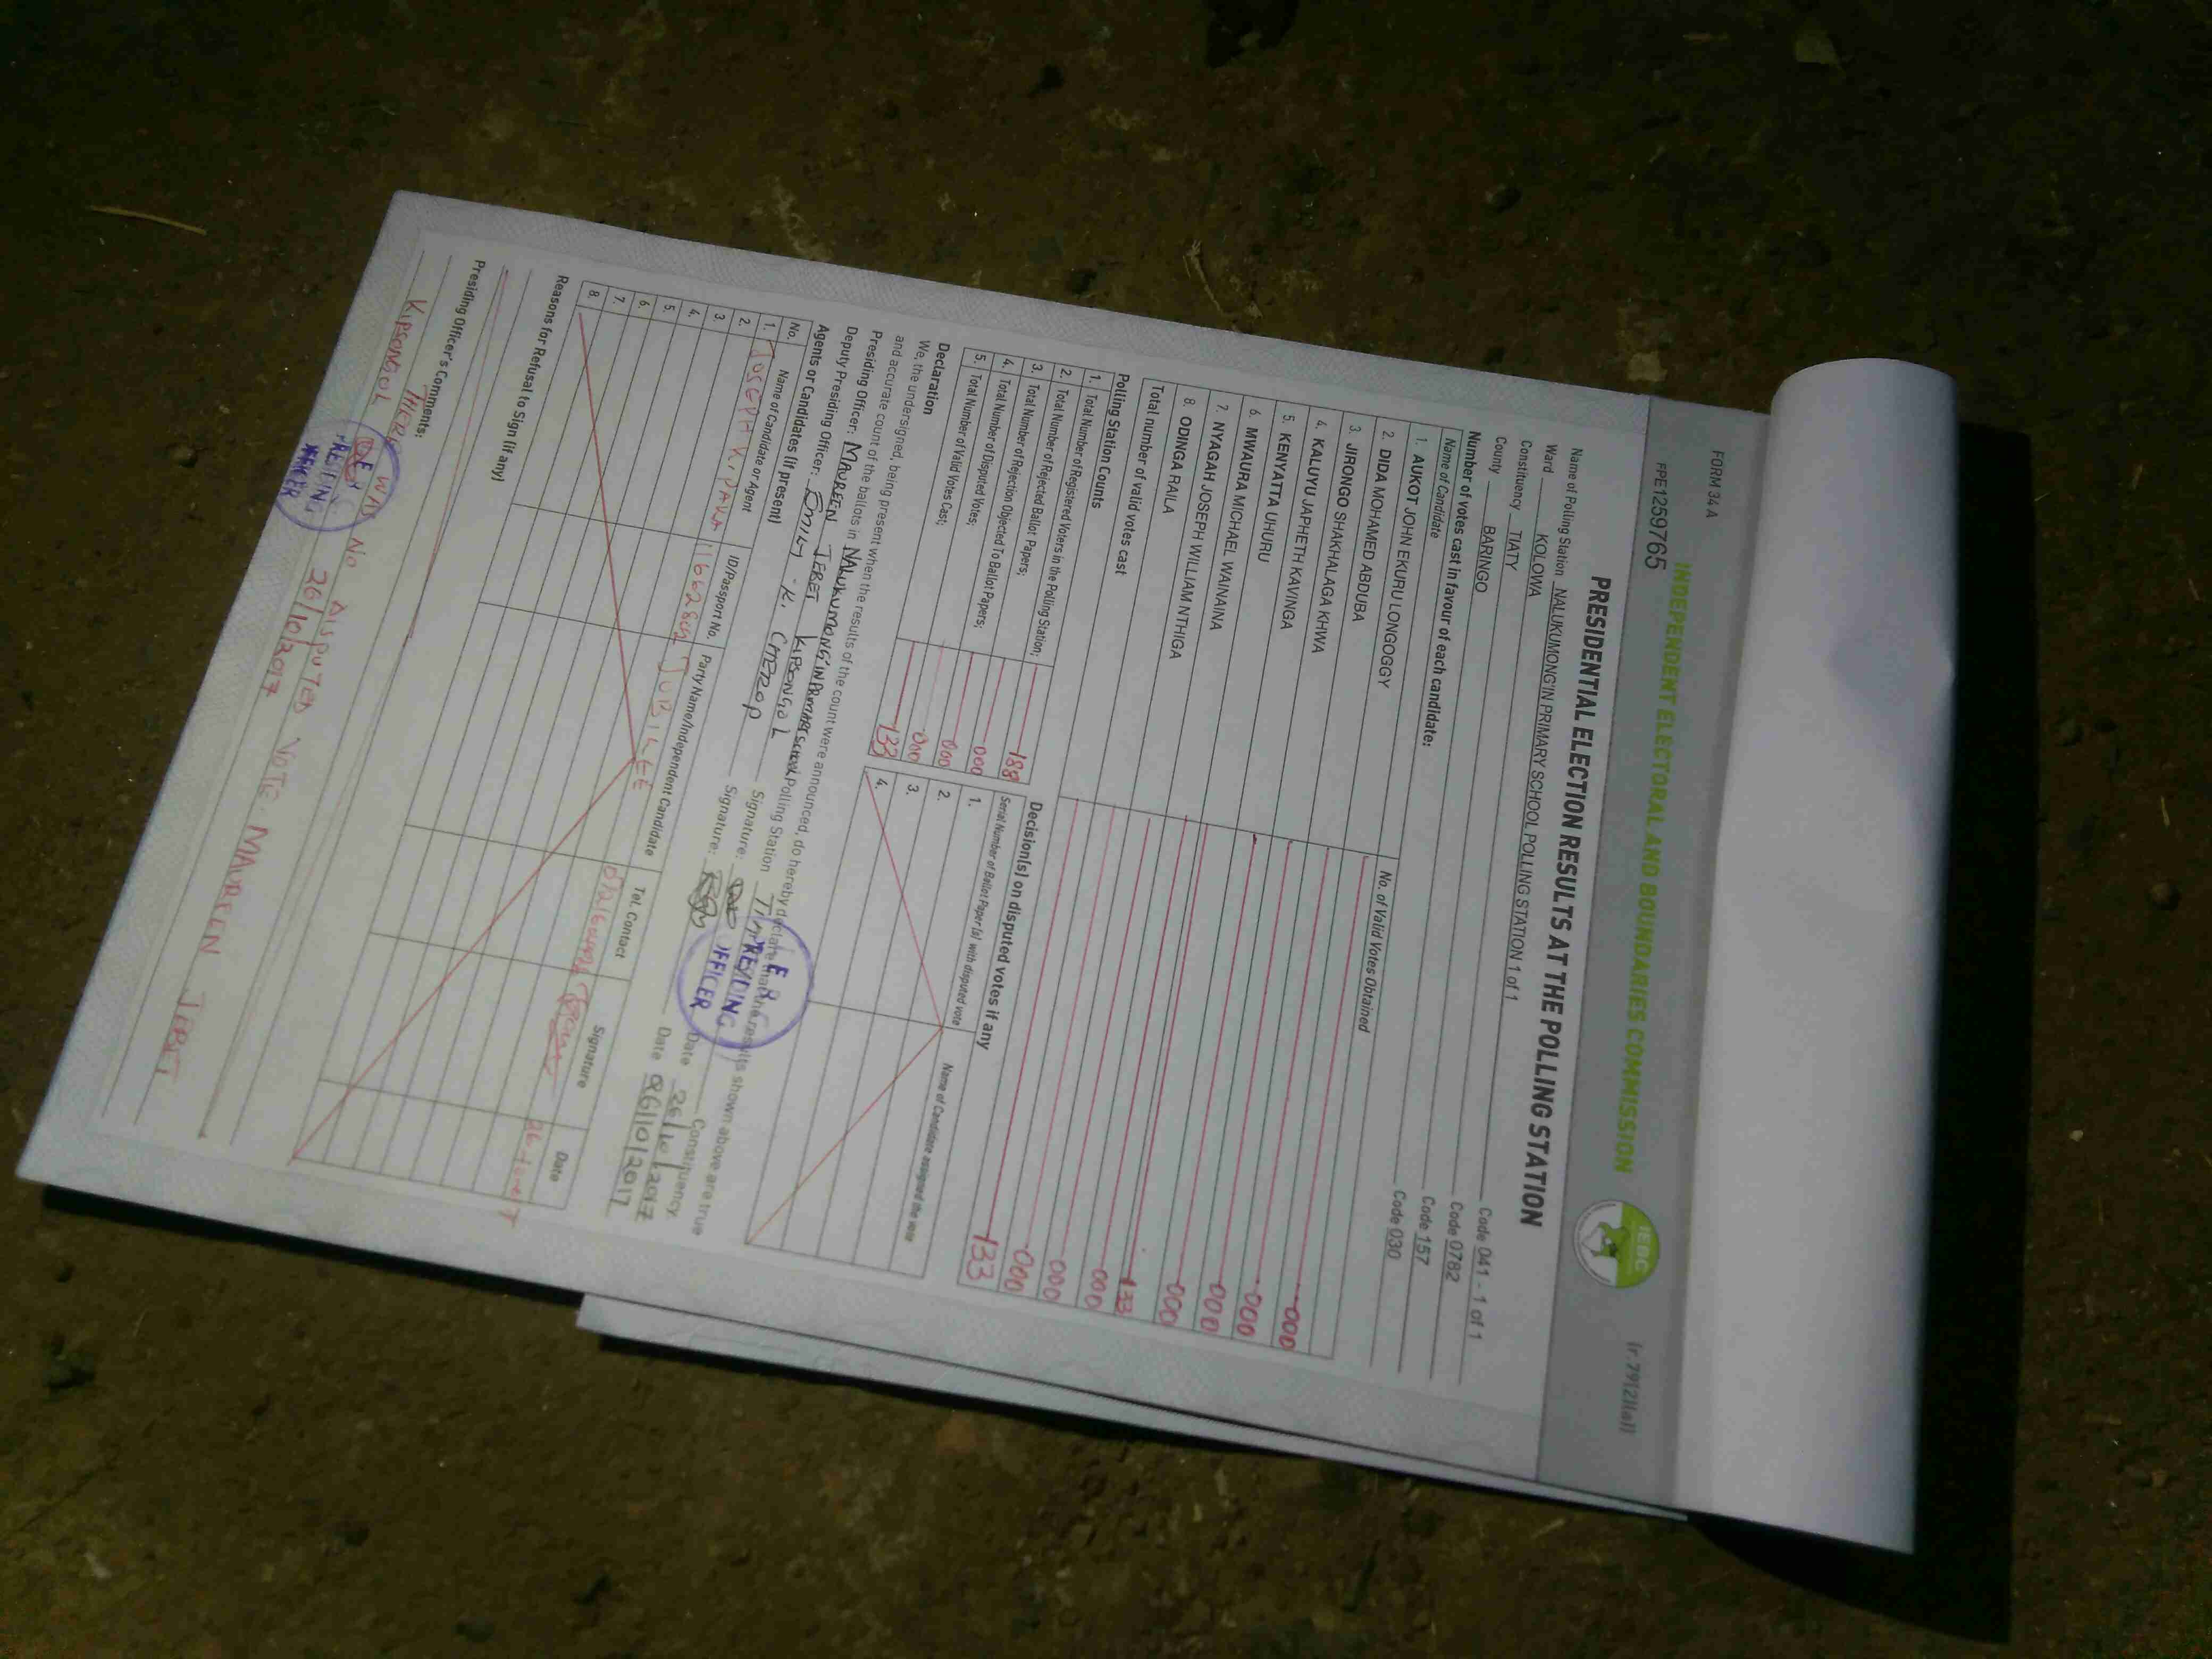 FORM 34 A
(r.79(2)(a))
FPE1259765
INDEPENDENT ELECTORAL AND BOUNDARIES COMMISSION
IEBC
PRESIDENTIAL ELECTION RESULTS AT THE POLLING STATION
Name of Polling Station NALUKUMONG'IN PRIMARY SCHOOL POLLING STATION 1 of 1 Code 041 - 1 of 1
Ward KOLOWA Code 0782
Constituency TIATY Code 157
County BARINGO Code 030
Number of votes cast in favour of each candidate:
Name of Candidate No. of Valid Votes Obtained
1. AUKOT JOHN EKURU LONGOGGY 000
2. DIDA MOHAMED ABDUBA 000
3. JIRONGO SHAKHALAGA KHWA 000
4. KALUYU JAPHETH KAVINGA 000
5. KENYATTA UHURU 133
6. MWAURA MICHAEL WAINAINA 000
7. NYAGAH JOSEPH WILLIAM NTHIGA 000
8. ODINGA RAILA 000
Total number of valid votes cast 133
Polling Station Counts
1. Total Number of Registered Voters in the Polling Station; 188
2. Total Number of Rejected Ballot Papers; 000
3. Total Number of Rejection Objected To Ballot Papers; 000
4. Total Number of Disputed Votes; 000
5. Total Number of Valid Votes Cast; 133
Decision(s) on disputed votes if any
Serial Number of Ballot Paper (s) with disputed vote Name of Candidate assigned the vote
1.
2.
3.
4.
Declaration
We, the undersigned, being present when the results of the count were announced, do hereby declare that the results shown above are true
and accurate count of the ballots in NALUKUMONG'IN PRIMARY SCHOOL Polling Station Constituency.
Presiding Officer: MAUREEN JEBET KIPSONGOL Signature: Date 26/10/2017
Deputy Presiding Officer: EMILY K. Signature: Date 26/10/2017
Agents or Candidates (if present)
No. Name of Candidate or Agent ID/Passport No. Party Name/Independent Candidate Tel. Contact Signature Date
1. JOSEPH JUBILEE
2.
3.
4.
5.
6.
7.
8.
Reasons for Refusal to Sign (if any)
Presiding Officer's Comments:
THERE WAS NO DISPUTED VOTE. MAUREEN JEBET
KIPSONGOL 26/10/2017
PRESIDING
OFFICER